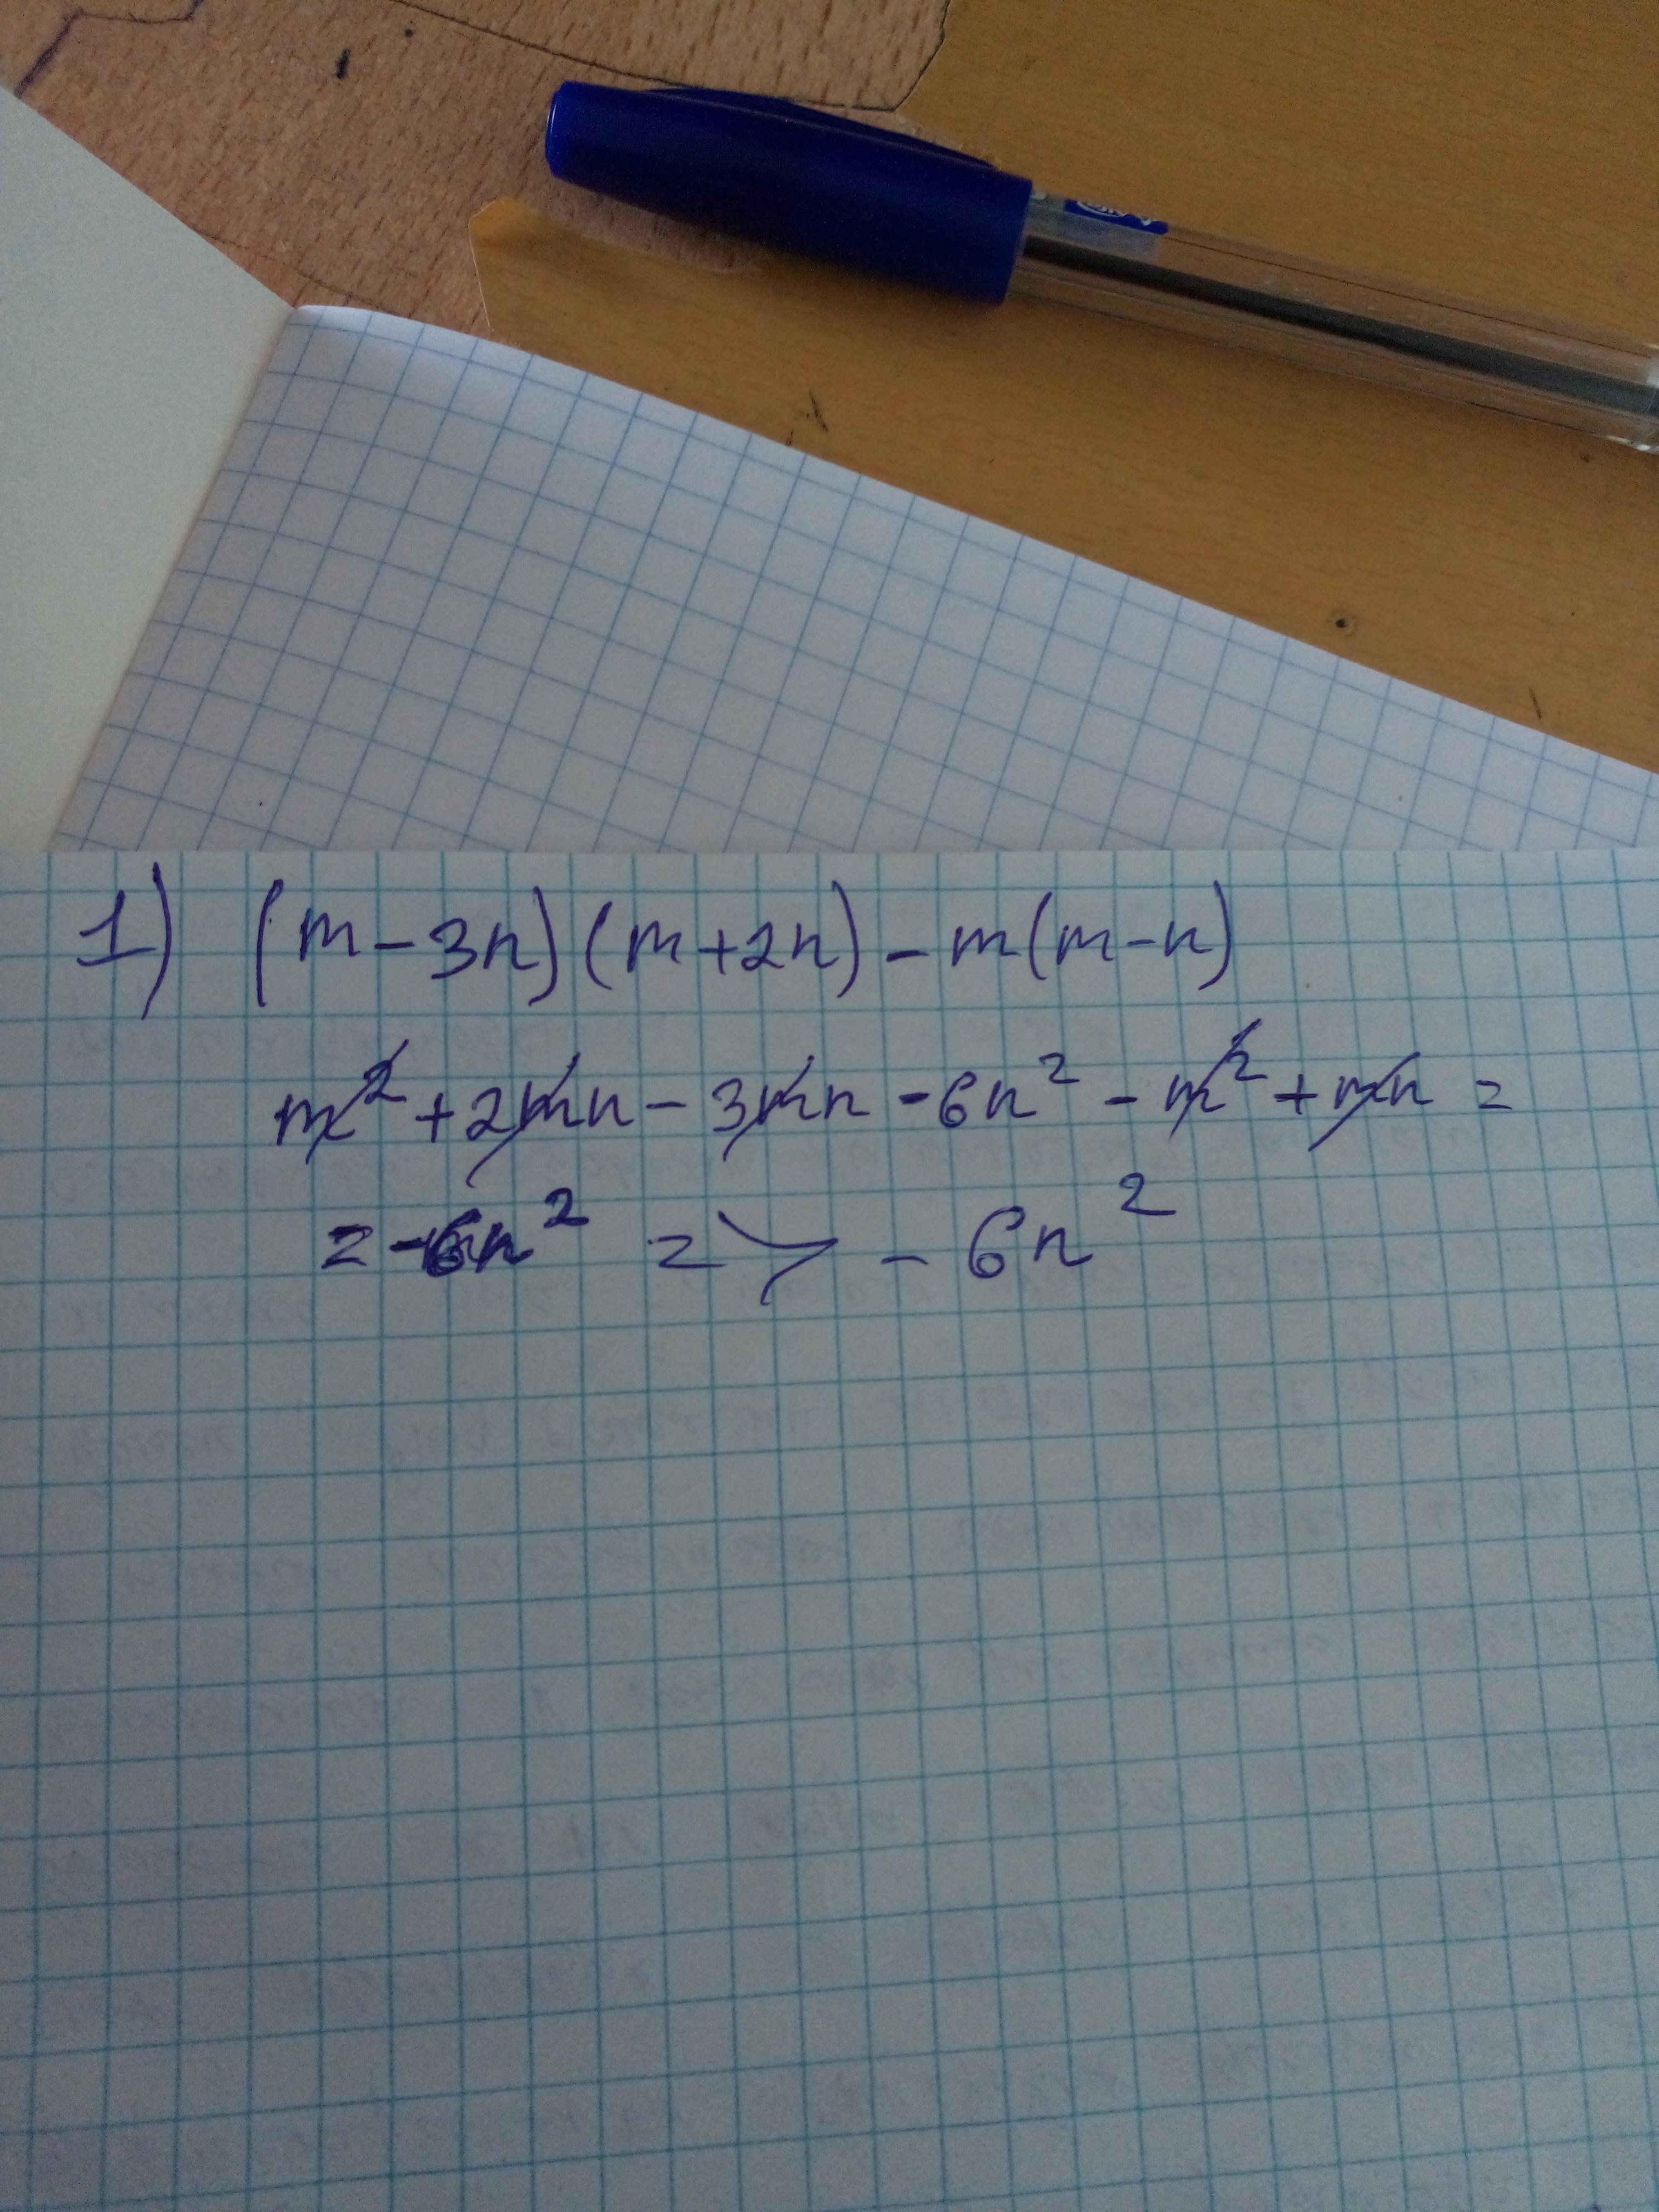 1) (m-3n)(m+2n)-m(m-n)
m²+2mn-3mn-6n²-m²+mn=
=-6n² => -6n²